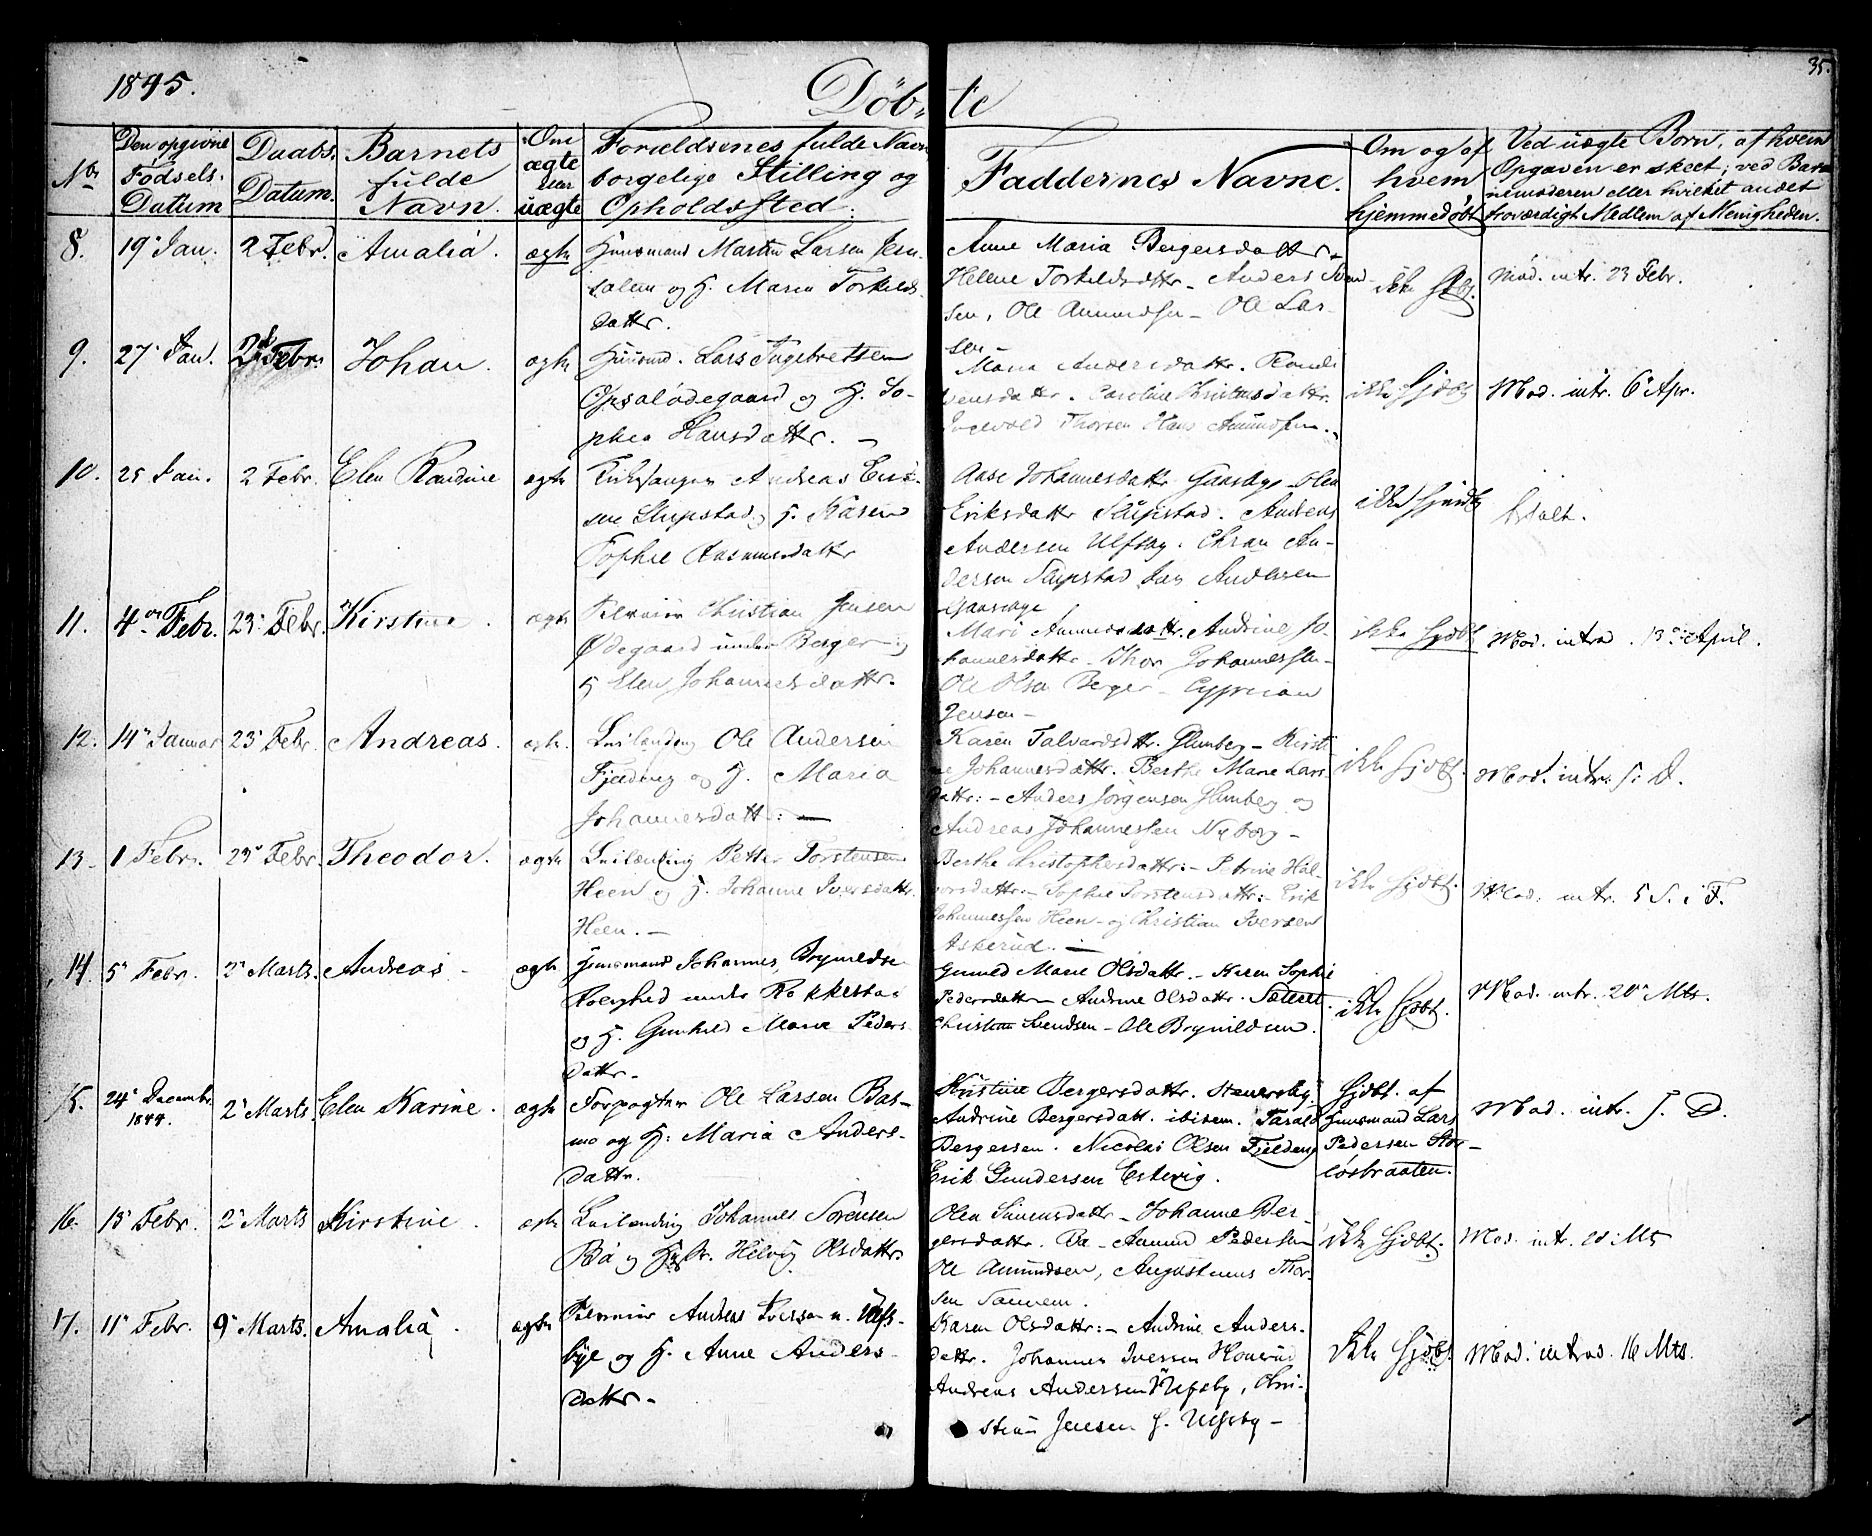 1845.
Döbte
35.
No
Den opgivne Fødsels-Datum
Daabs-Datum.
Barnets fulde Navn.
Om ægte eller uægte
Forældrenes fulde Navn borgelige Stilling og Opholdssted.
Faddernes Navne.
Om og af hvem hjemmedøbt
Ved uægte Børn, af hvem Opgaven er skeet; ved Barnemoderen eller hvilket andet troværdigt Medlem af Menigheden.
8. 19 Jan. 2 Febr. Amalia. ægte
Huusmand Martin Larsen Jeru-
salem og H. Maria Torkilds-
dattr.
Anne Maria Bergersdattr -
Helene Torkildsdattr - Anders Svend
sen, Ole Amundsen - Ole Lar-
sen -
ikke Hjdbt.
Mod. intr. 23 Febr.
9. 27 Jan. Febr. Johan. ægte
Huusmd. Lars Ingebretsen
Opsalödegaard og H. So-
phia Hansdattr. -
Maria Andersdattr.
Caroline
Ingevald Thorsen Hans Amundsen.
ikke Hjdbt
Mod. intr. 6 Apr.
10. 25 Jan. 2 Febr. Elen Randine ægte
Kirkesanger Andreas Erik-
sen Slupstad og H. Karen
Sophie Rasmusdattr
Aase Johannesdattr - Olea
Eriksdattr Slupstad. Andreas
Andersen Ulfsby. Chran An-
dersen Slupstad Andersen
ikke Hjmdbt
11. 4de Febr. 23 Febr. Kirstine. ægte
Christian Jensen
Ødegaard under Berger og
H Elen Johannesdattr.
Mari dattr. Andrine Jo-
hannesdattr - Thor Johannessen -
Ole Olsen Berger - Cyprian
Jensen -
ikke Hjdbt
Mod. intrd. 13 April.
12. 14 Januar 23 Febr. Andreas. ægte.
Leilænding Ole Andersen
og H. Maria
Johannesdattr: -
Karen dttr. Glenberg - Kirsti-
ne Johannesdattr. Berthe Marie Lars-
dattr: - Anders Jörgensen Glenberg og
Andreas Johannessen Nyborg -
ikke Hjdbt.
Mod. intr. s: D.
13. 1 Febr. 23 Febr. Theodor. ægte
Leilænding Petter Torstensen
Heen og H. Johanne Iversdattr.
Heen. -
Berthe Christophersdattr: - Petrine Hal-
vorsdattr: - Sophie Torstensdattr: - Erik
Johannessen Heen - og Christian Iversen
Askerud. -
ikke Hjdbt.
Mod. intr. 5 S. i F.
14. 5 Febr. 2 Marts. Andreas - ægte
Huusmand Johannes Brynildsen
under Rakkestad
og H. Gunhild Maria Peders-
dattr -
Gunild Marie Olsdattr. - Karen Sophie
Pedersdattr - Andrine Olsdattr.
Christian Svendsen - Ole Brynildsen.
ikke Hjdbt.
Mod. intr. 20 Mts.
15. 24 Decembr. 1844. 2 Marts Elen Karine. ægte
Forpagter Ole Larsen Bas-
mo og H: Maria Anders-
dattr.
Kristine Bergersdattr. Stenersby.
Andrine Bergersdatt. ibidem. Tarald
Bergersen. Nicolai Olsen
Erik Gundersen Estvig.
Hjdbt. af
Huusmand Lars
Pedersen Stor-
løsbraaten.
Mod. intr. s. D.
16. 15 Febr. 2 Marts Kirstine. ægte
Leilænding Johannes Sörensen
Bö og Helvig Olsdattr.
Olea Simensdattr - Johanne Ber-
gersdattr. Bö - Amund Pedersen
Ole Amundsen, Augustinus Thor-
sen
ikke Hjdbt.
Mod. intr. Mts
17. 11 Febr. 9 Marts. Amalia. ægte
Andreas Iversen u. Ulfs-
bye og H. Anne Anders-
dattr -
Karen Olsdattr: - Andrine Anders-
dattr. Johannes Iversen
Andreas Andersen Ulfsby, Chri-
stian Jensen Ulfsby -
Ikke Hjdbt.
Mod. introd. 16 Mts.